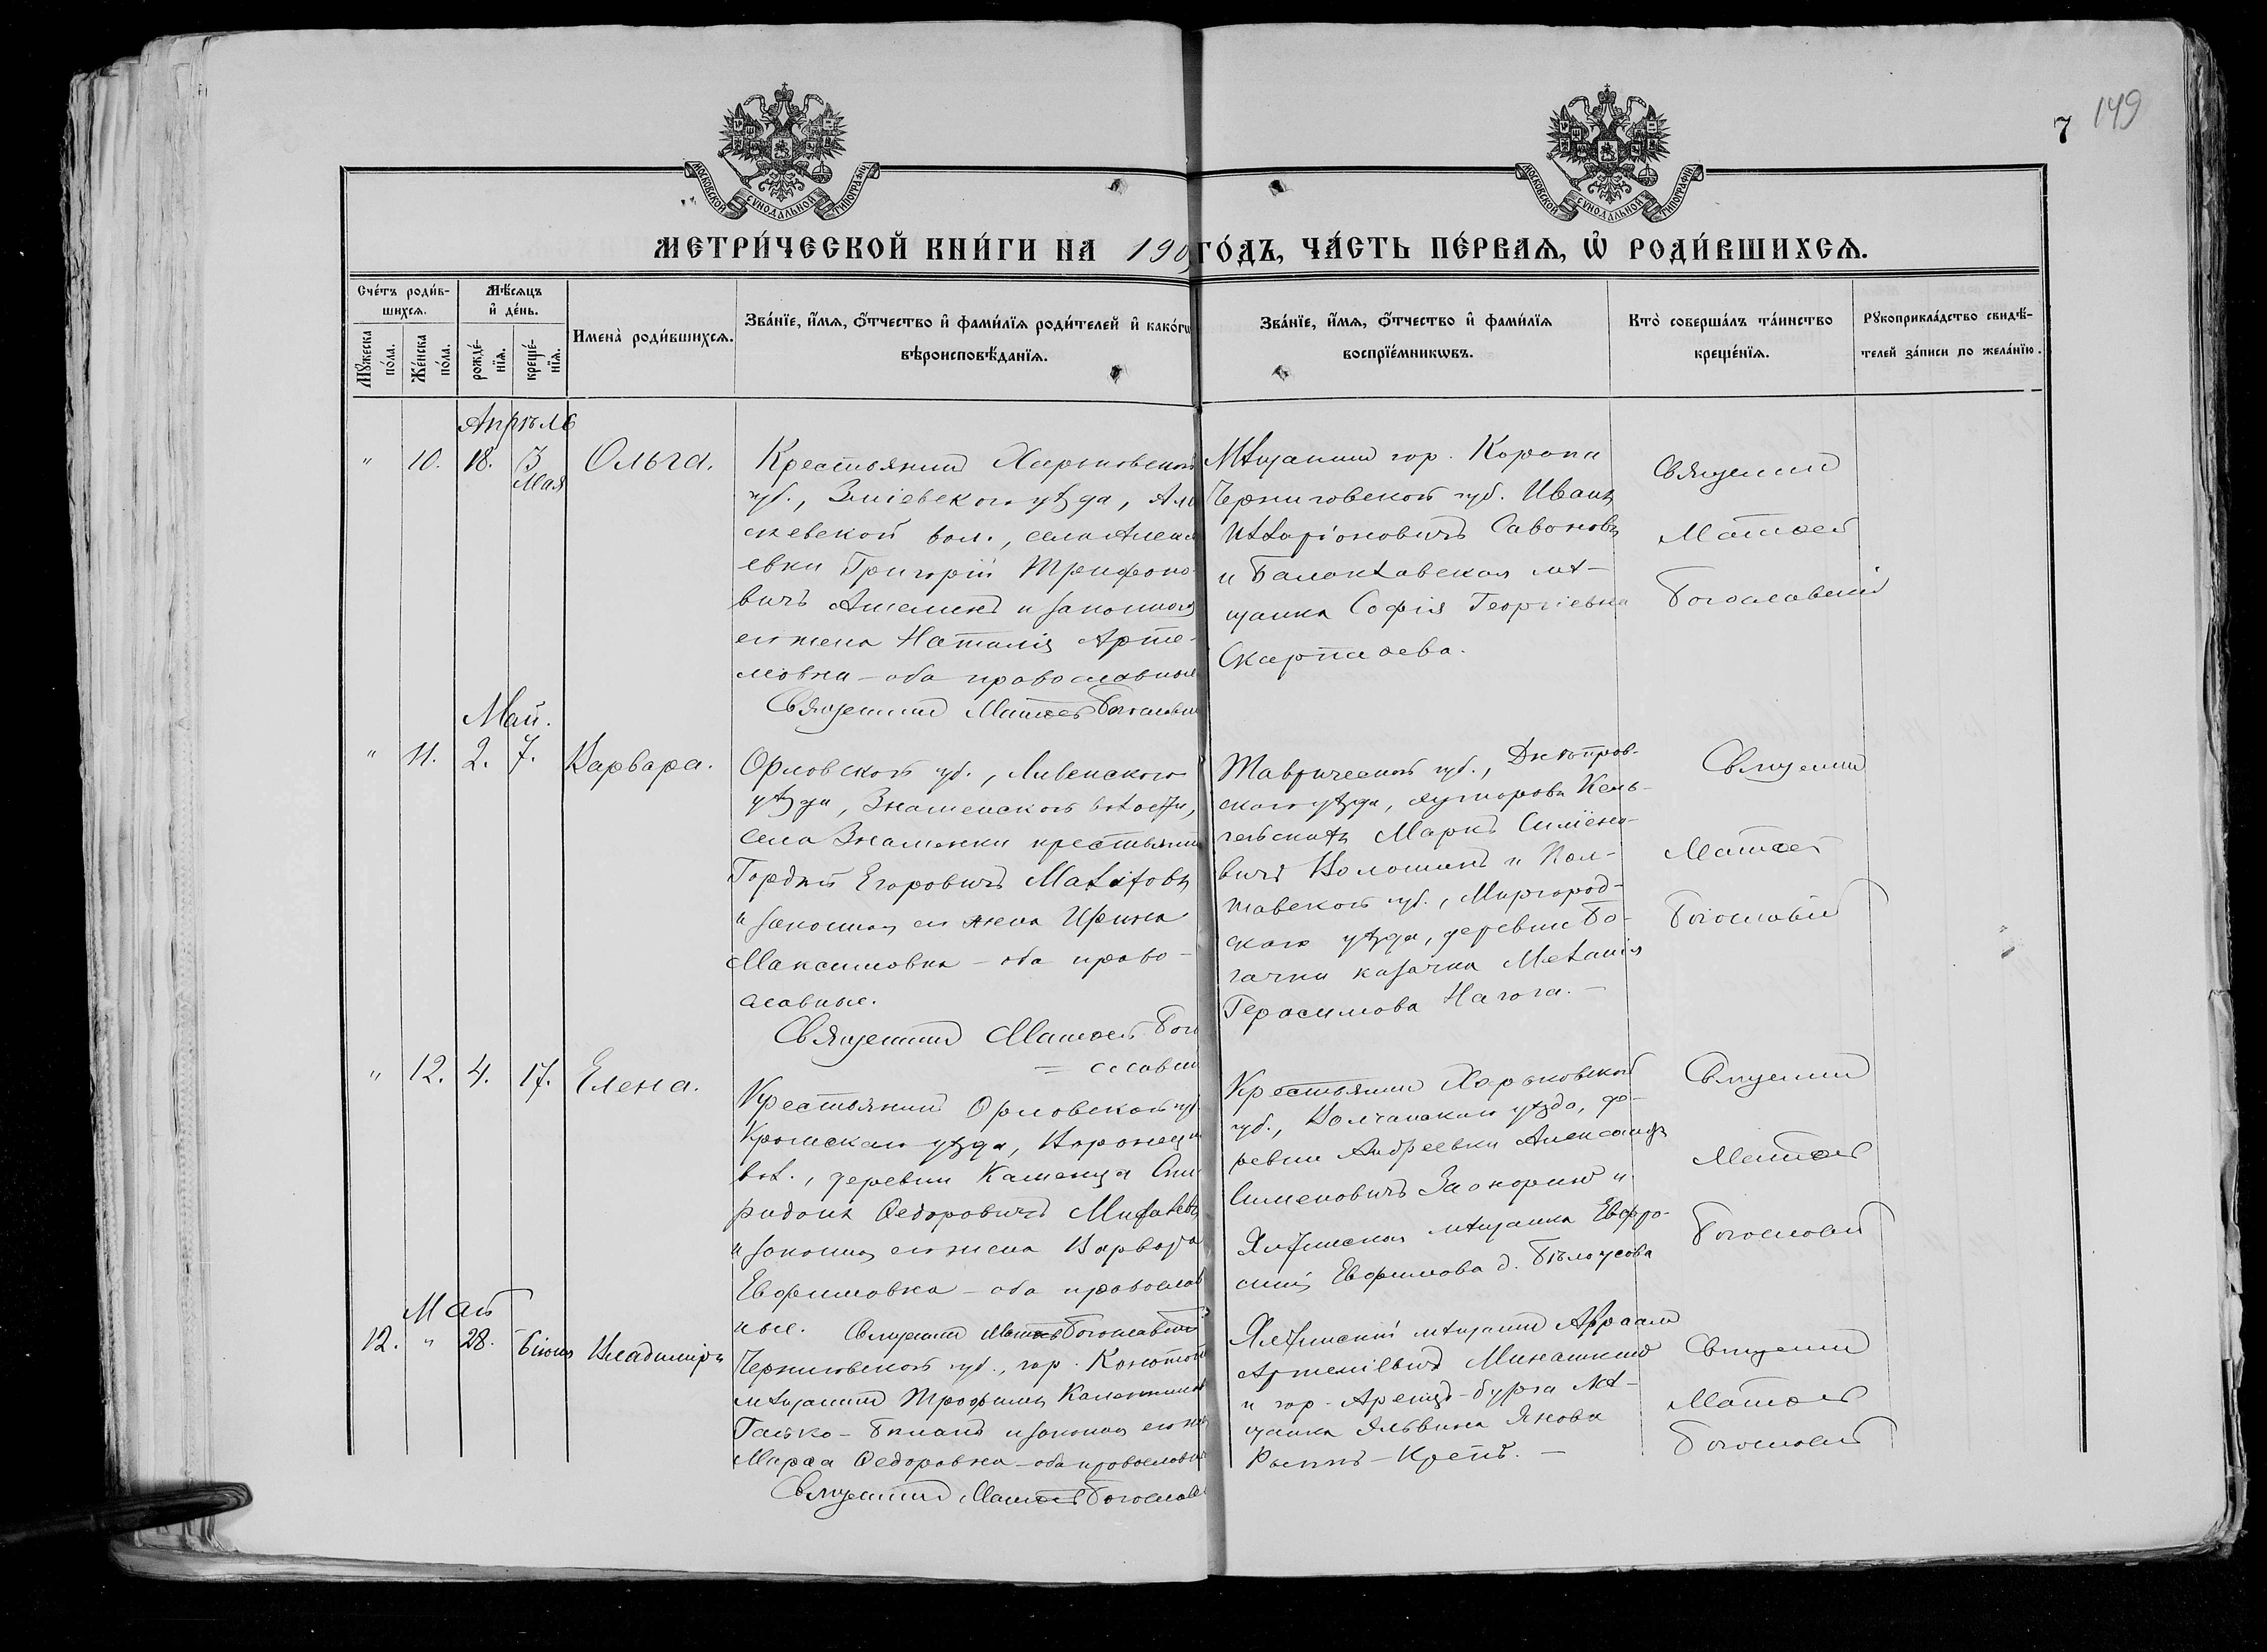 149
7
МОСКОВСКОЙ СѴНОДАЛЬНОЙ ТИПОГРАФІИ
МОСКОВСКОЙ СѴНОДАЛЬНОЙ ТИПОГРАФІИ
МЕТРИ́ЧЕСКОЙ КНИ́ГИ НА 190 ГО́ДЪ, ЧА́СТЬ ПЕ́РВАЯ, Ѡ҆ РОДИ́ВШИХСЯ.
Сче́тъ роди́в-
шихся.
Мꙋ́жеска по́ла.
Же́нска по́ла.
Мѣ́сяцъ и҆ де́нь.
рожде́-
нїя.
креще́-
нїя.
Имена̀ роди́вшихся.
Зва́нїе, и҆́мя, ѻ҆́тчество и҆ фами́лїя роди́телей и҆ како́гѡ
вѣроисповѣ́данїя.
Зва́нїе, и҆́мя, ѻ҆́тчество и҆ фами́лїя
воспрїе́мникѡвъ.
Кто̀ соверша́лъ та́инство
креще́нїя.
Рꙋкоприкла́дство свидѣ́-
телей за́писи по жела́нїю.
Апрѣль
" 10. 18. 3 Мая Ольга.
Крестьянинъ Харьковской
губ., Зміевскаго уѣзда, Але
ксѣевской вол., села Алексѣ
евки Григорій Трифоно-
вичъ и законная
его жена Наталія Арте-
мовна – оба православные
Священникъ Матѳей Богословскій
Мѣщанинъ гор. Коропа
Черниговской губ. Иванъ
Илларіоновичъ Савоновъ
и Балаклавская мѣ-
щанка Софія Георгіевна
Священникъ
Матѳей
Богословскій
Май.
" 11. 2. 7. Варвара.
Орловской губ., Ливенскаго
уѣзда, Знаменской волости,
села Знаменки крестьянинъ
Гордѣй Егоровичъ
и законная его жена Ирина
Максимовна – оба право-
славные.
Священникъ Матѳей Бого
= словскій
Таврической губ., Днѣпров-
скаго уѣзда, хуторовъ
Маркъ Симеоно-
вичъ Волошинъ и Пол-
тавской губ., Миргород-
скаго уѣзда, деревни Бо-
гачки казачка Меланія
Герасимова Нагога. –
Священникъ
Матѳей
Богословскій
" 12. 4. 17. Елена.
Крестьянинъ Орловской губ
Кромскаго уѣзда,
вол., деревни Каменца Спи
ридонъ Ѳедоровичъ
и законная его жена Варвара
Евфимовна – оба православ
ные. Священникъ Матѳей Богословскій
Крестьянинъ Харьковской
губ., Волчанскаго уѣзда, де-
ревни Андреевки Александръ
Симеоновичъ и
Ялтинская мѣщанка Евфро-
синія Евфимова д. Бѣлоусова
Священникъ
Матѳей
Богословскій
Май
12. " 28. 6 іюня Владиміръ
Черниговской губ., гор. Конотопа
мѣщанинъ Трофимъ
и законная его жена
Марѳа Ѳедоровна – оба православные
Священникъ Матѳей Богословскій
Ялтинскій мѣщанинъ Авраамъ
Минашкинъ
и гор. Аренсбурга мѣ-
щанка Яковл
Священникъ
Матѳей
Богословскій